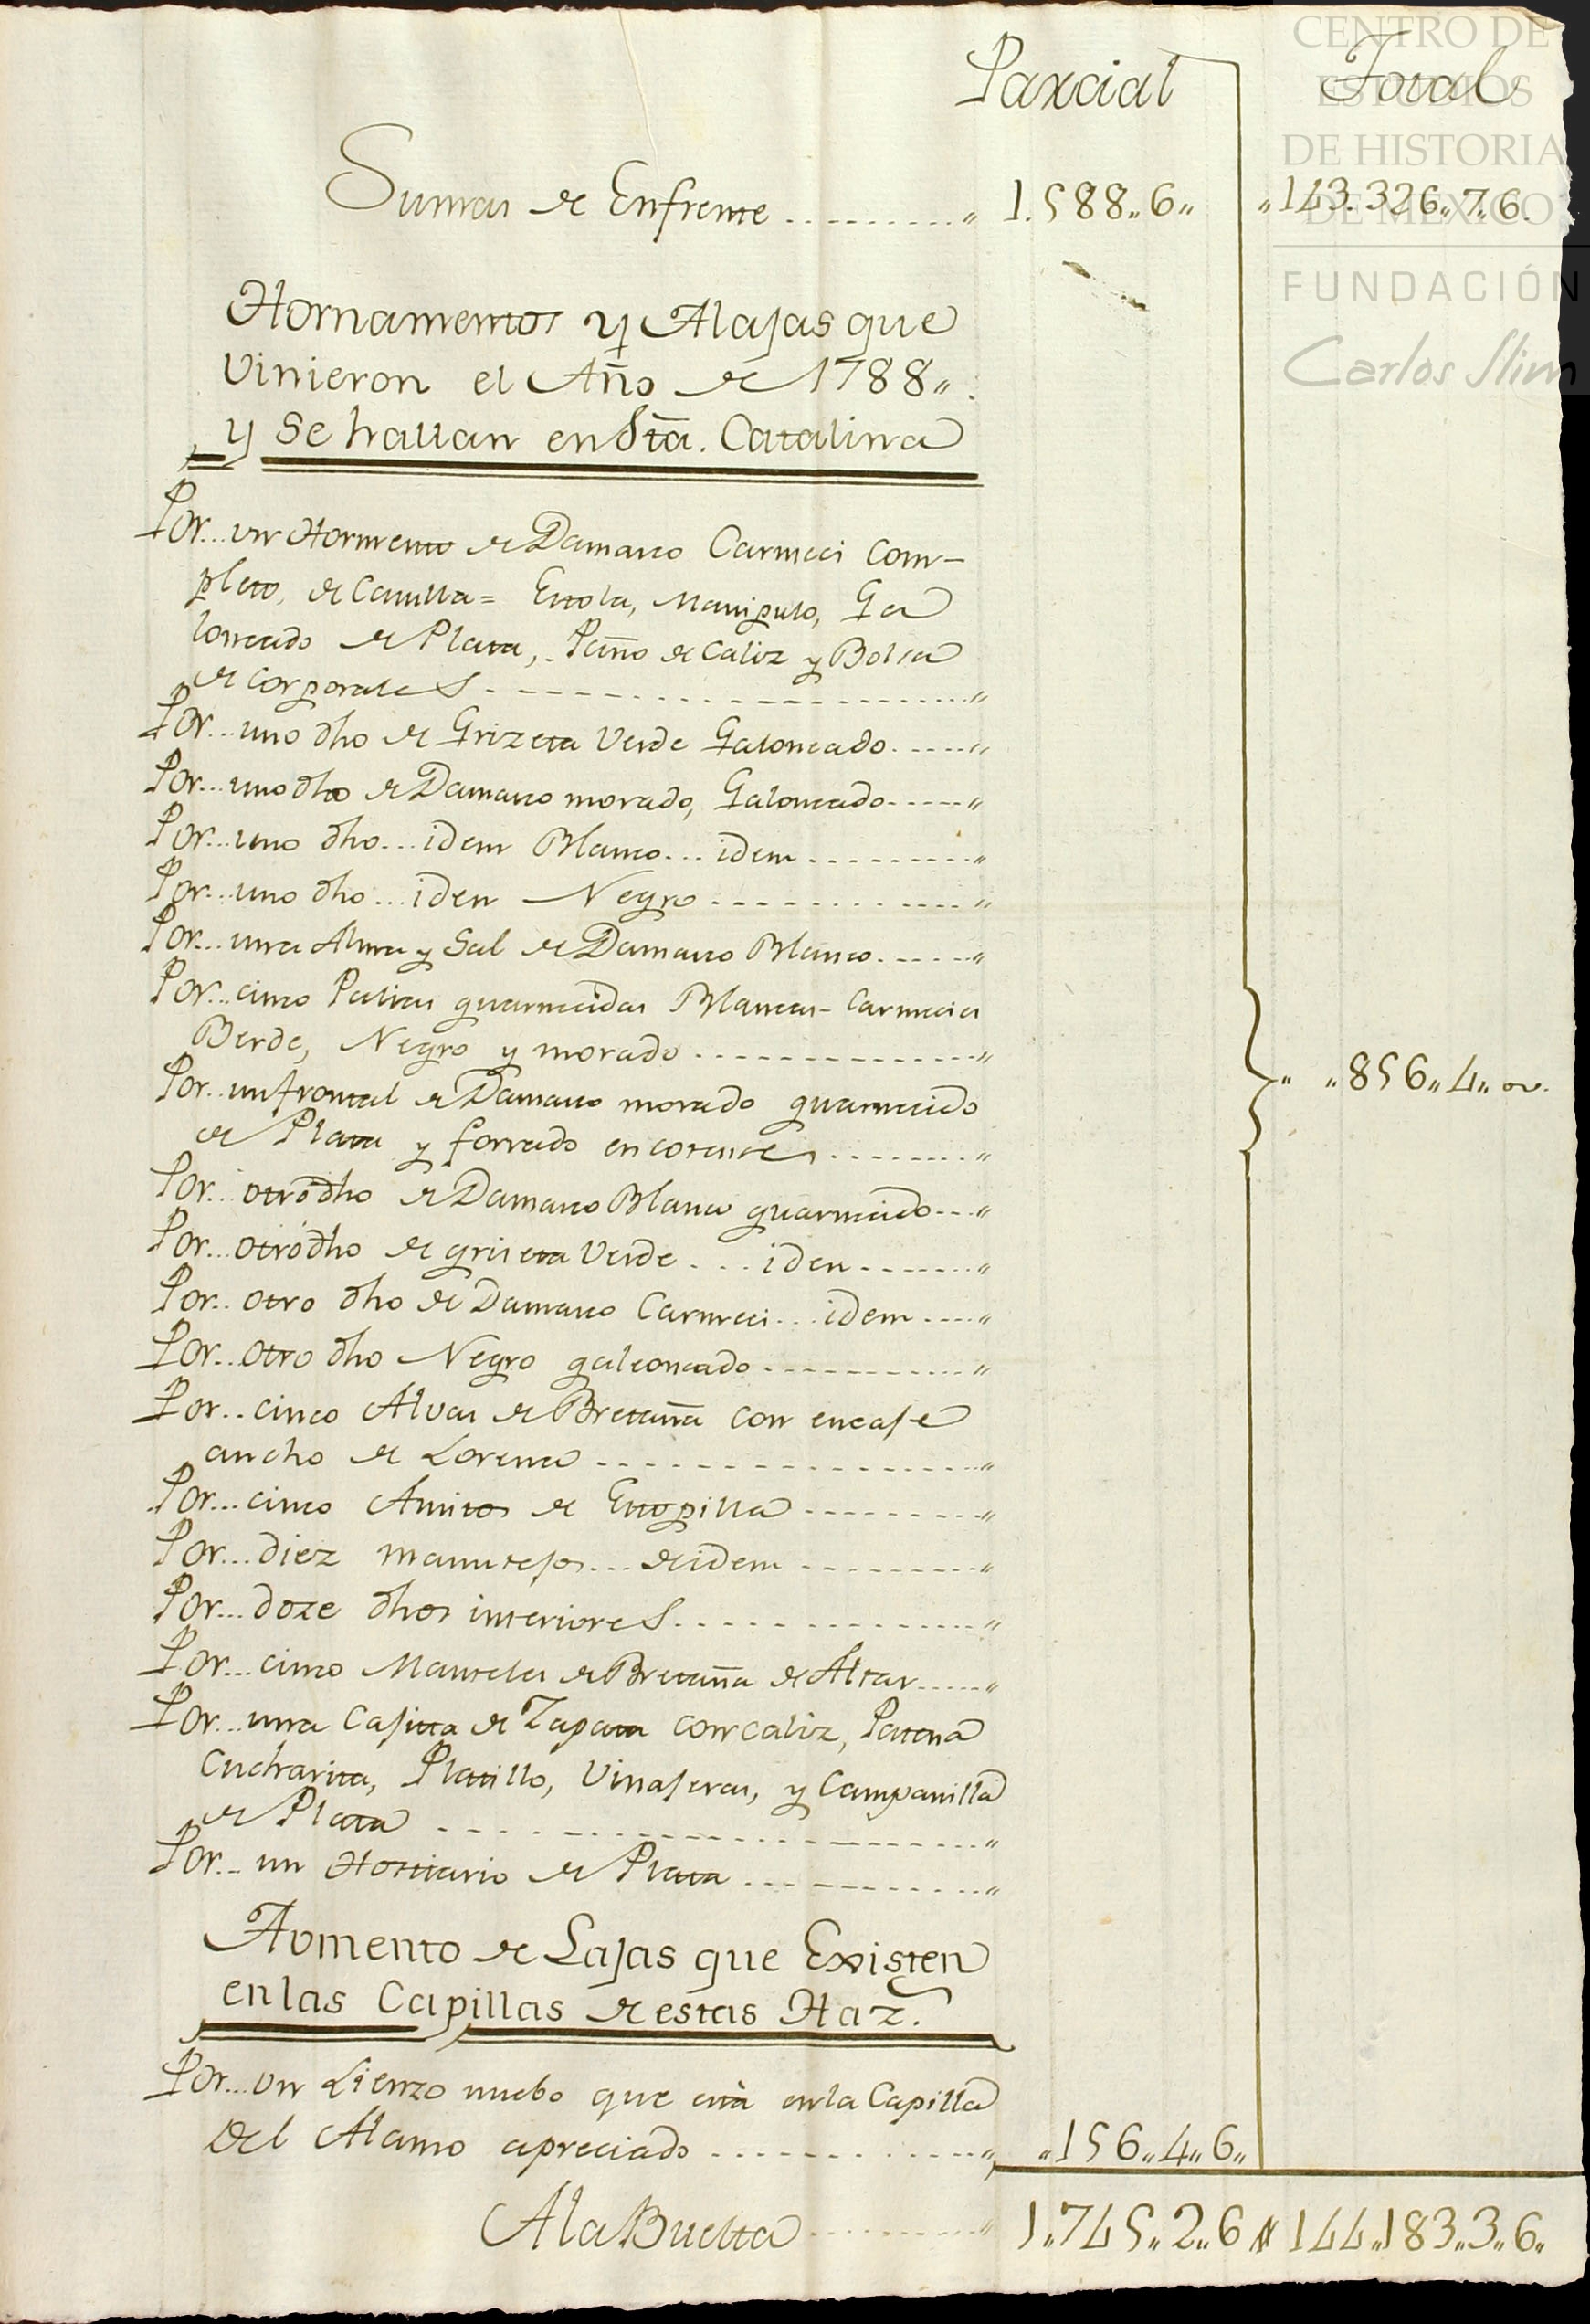 CENTRO DE
ESTUDIOS
DE HISTORIA
DE MEXICO
FUNDACIÓN
Carlos Slim
Parcial Total
Sumas de Enfrente .......... " 1.588.,6., " 143.326.,7.,6.
Hornamentos y Alajas que
Vinieron el Año de 1788.,
y Se hallan en Sta. Catalina
Por... un Hormento de Damasco Carmeci Com-
pleto, de Casulla = Estola, Manipulo, Ga
loneado de Plata, Paño de Caliz y Bolsa
de Corporales ---------- "
Por... uno dho de Grizeta Verde Galoneado ----- "
Por... uno dho de Damasco morado, Galoneado ----- "
Por... uno dho... idem Blanco... idem --------- "
Por... uno dho... iden Negro ---------- "
Por... una Alma y Sal de Damasco Blanco ----- "
Por... cinco Palias guarnecidas Blancas- Carmecies
Berde, Negro y morado ------------- "
Por.. un frontal de Damasco morado guarnecido " "856.,4.,0v.
de Plata y forrado en cotense --------- "
Por... otro dho de Damasco Blanco guarnecido --- "
Por... otro dho de griseta Verde ... iden ------- "
Por.. otro dho de Damasco Carmeci... idem ----- "
Por.. otro dho Negro galeoneado ---------- "
Por.. cinco Alvas de Bretaña con encaje
ancho de Lorena --------------- "
Por... cinco Amitos de Estopilla --------- "
Por... diez manutejos... de idem --------- "
Por... doze dhos interiores ------------- "
Por... cinco Manteles de Bretaña de Altar ----- "
Por... una Cajita de Zapata con caliz, Patena
Cucharita, Platillo, Vinajeras, y Campanilla
de Plata ------------------ "
Por.. un Hostiario de Plata ----------- "
Aomento de Lajas que Existen
en las Capillas de estas Haz.
Por... un Lienzo nuebo que está en la Capilla
Del Alamo apreciado ------------ " "156.,4.,6.,
A la Buelta ---------- " 1.,745.,2.,6 " 144.,183.,3.,6.,